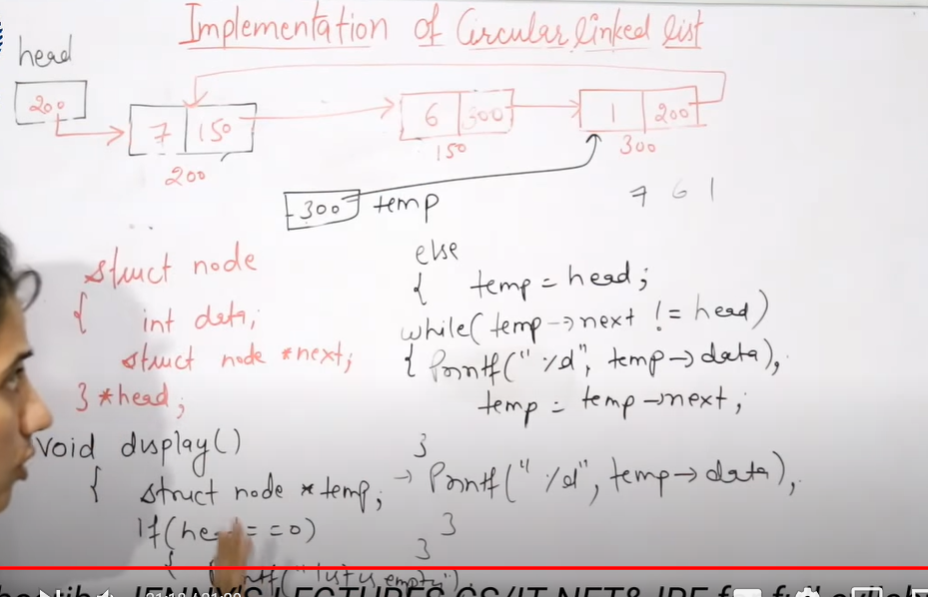 Implementation of Circular linked list
head
200
7 150
6 300
1 200
200
150
300
300 temp
7 6 1
struct node
{ int data;
struct node *next;
} *head;
void display()
{ struct node *temp;
If(he == 0)
{ Printf("list is empty");
else
{ temp = head;
while(temp→next != head)
{ Printf("%d", temp→data);
temp = temp→next;
}
→ Printf("%d", temp→data);
}
}
JENNY'S LECTURES CS/IT NET&JRF